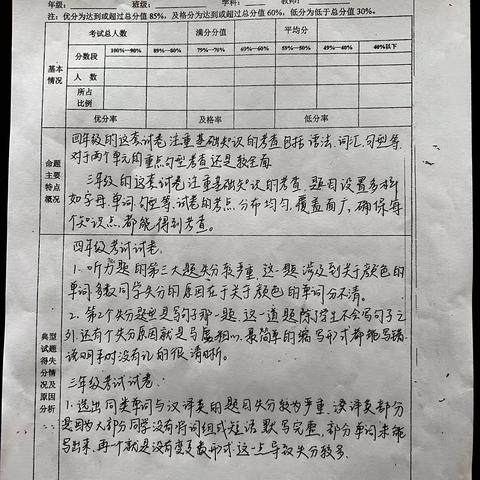 年级: 班级: 学科: 教师:
注：优分为达到或超过总分值 85%，及格分为达到或超过总分值 60%，低分为低于总分值 30%。
基本情况
考试总人数 满分分值 平均分
分数段 100%—90% 89%—80% 79%—70% 69%—60% 59%—50% 49%—40% 40%以下
人 数
所占比例
优分率 及格率 低分率
命题主要特点概况
四年级的这套试卷注重基础知识的考查包括语法、词汇、句型等
对于两个单元的重点句型考查还是较全面
三年级的这套试卷注重基础知识的考查、题目设置多样
如字母、单词、句型等、试卷的考点分布均匀、覆盖面广、确保每
个知识点都能得到考查。
典型试题得失分情况及原因分析
四年级考试试卷：
1. 听力题的第三大题失分较严重 这一题涉及到关于颜色的
单词多数同学失分的原因在于关于颜色的单词分不清。
2. 第2个失分题型是写句子那一题、这一道题除了学生不会写句子之
外、还有个失分原因就是马虎粗心、最简单的缩写形式都能写错、
说明平时没有记的很清晰。
三年级考试试卷：
1. 选出同类单词与汉译英的题目失分较为严重、汉译英部分
是因为大部分同学没有将词组或短语默写完整、部分单词未能
写出来、再一个就是没有变复数形式、这一点导致失分较多.